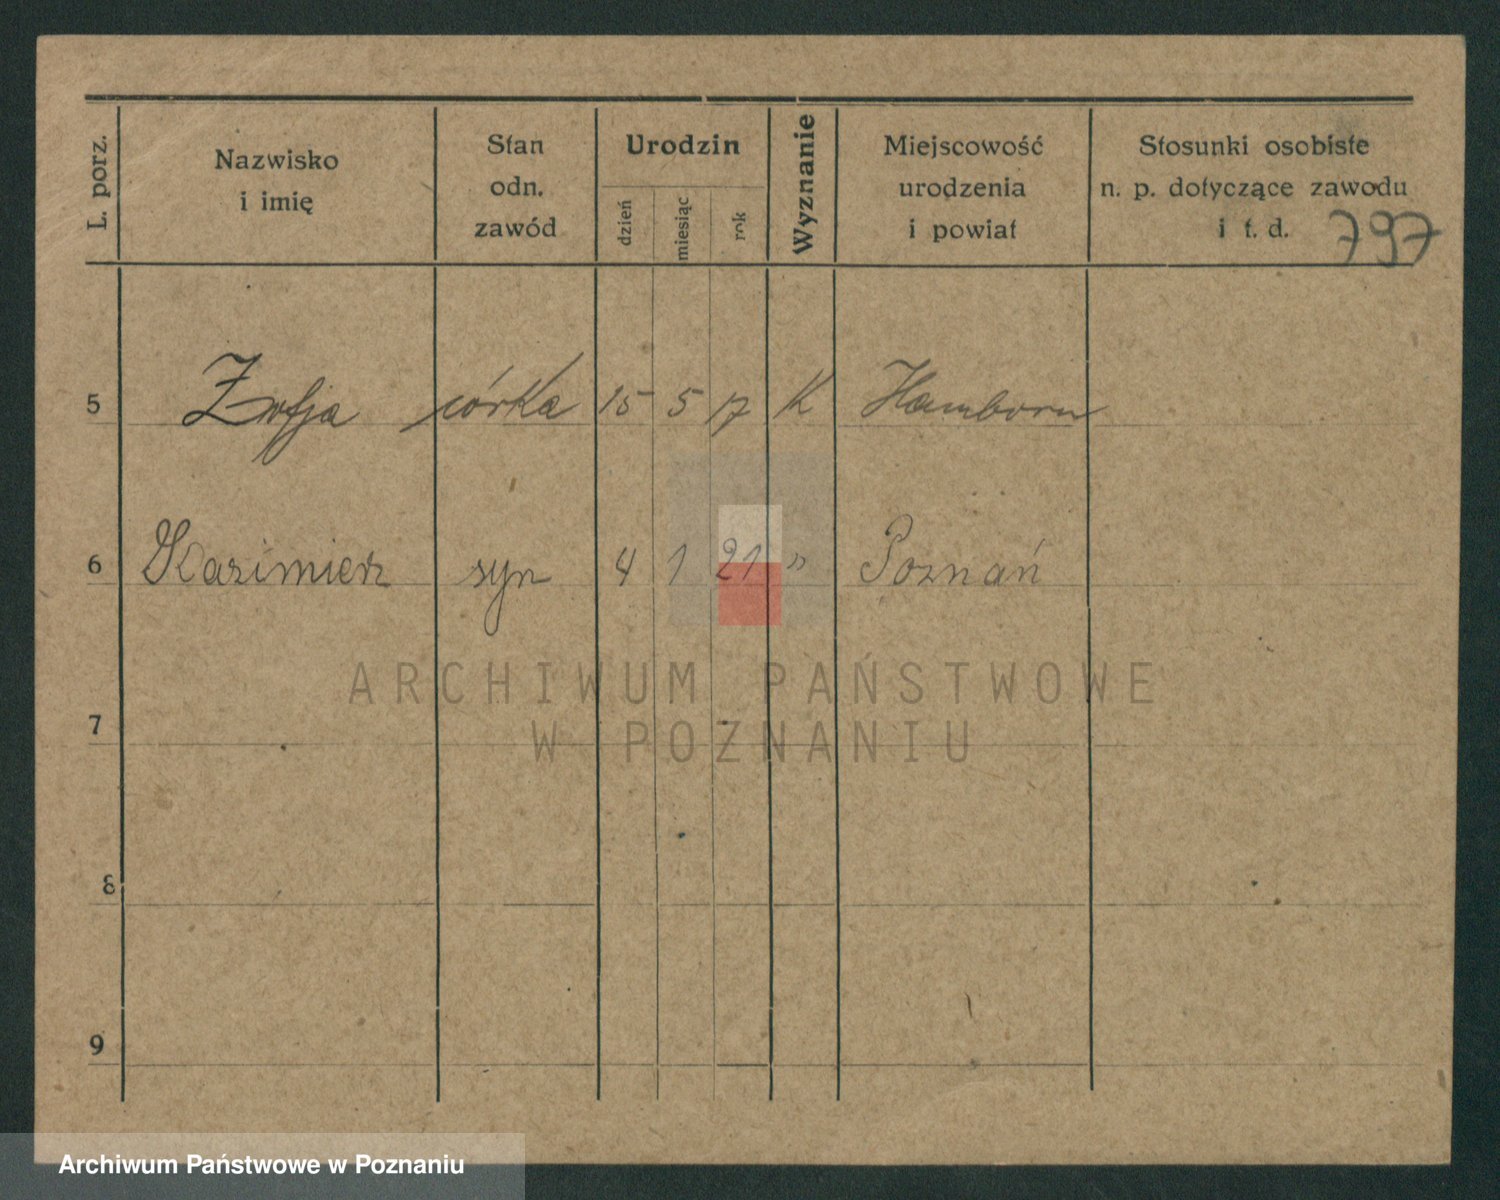 L. porz.
Nazwisko
i imię
Stan
odn.
zawód
Urodzin
dzień
miesiąc
rok
Wyznanie
Miejscowość
urodzenia
i powiat
Stosunki osobiste
n. p. dotyczące zawodu
i t. d.
797
5 Zofja córka 15 5 17 K Hamborn
6 Kazimierz syn 4 1 21 " Poznań
ARCHIWUM PAŃSTWOWE
W POZNANIU
7
8
9
Archiwum Państwowe w Poznaniu